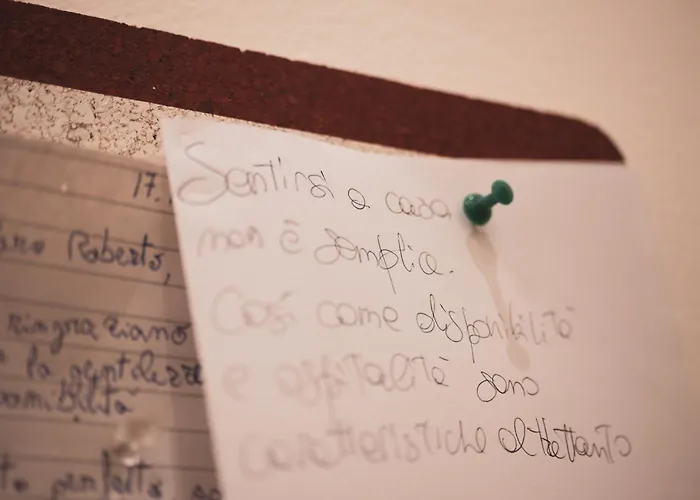 17.
Roberto,
ringraziano
la gentilezza
Sentirsi a casa
non è semplice.
Così come disponibilità
e ospitalità sono
caratteristiche altrettanto